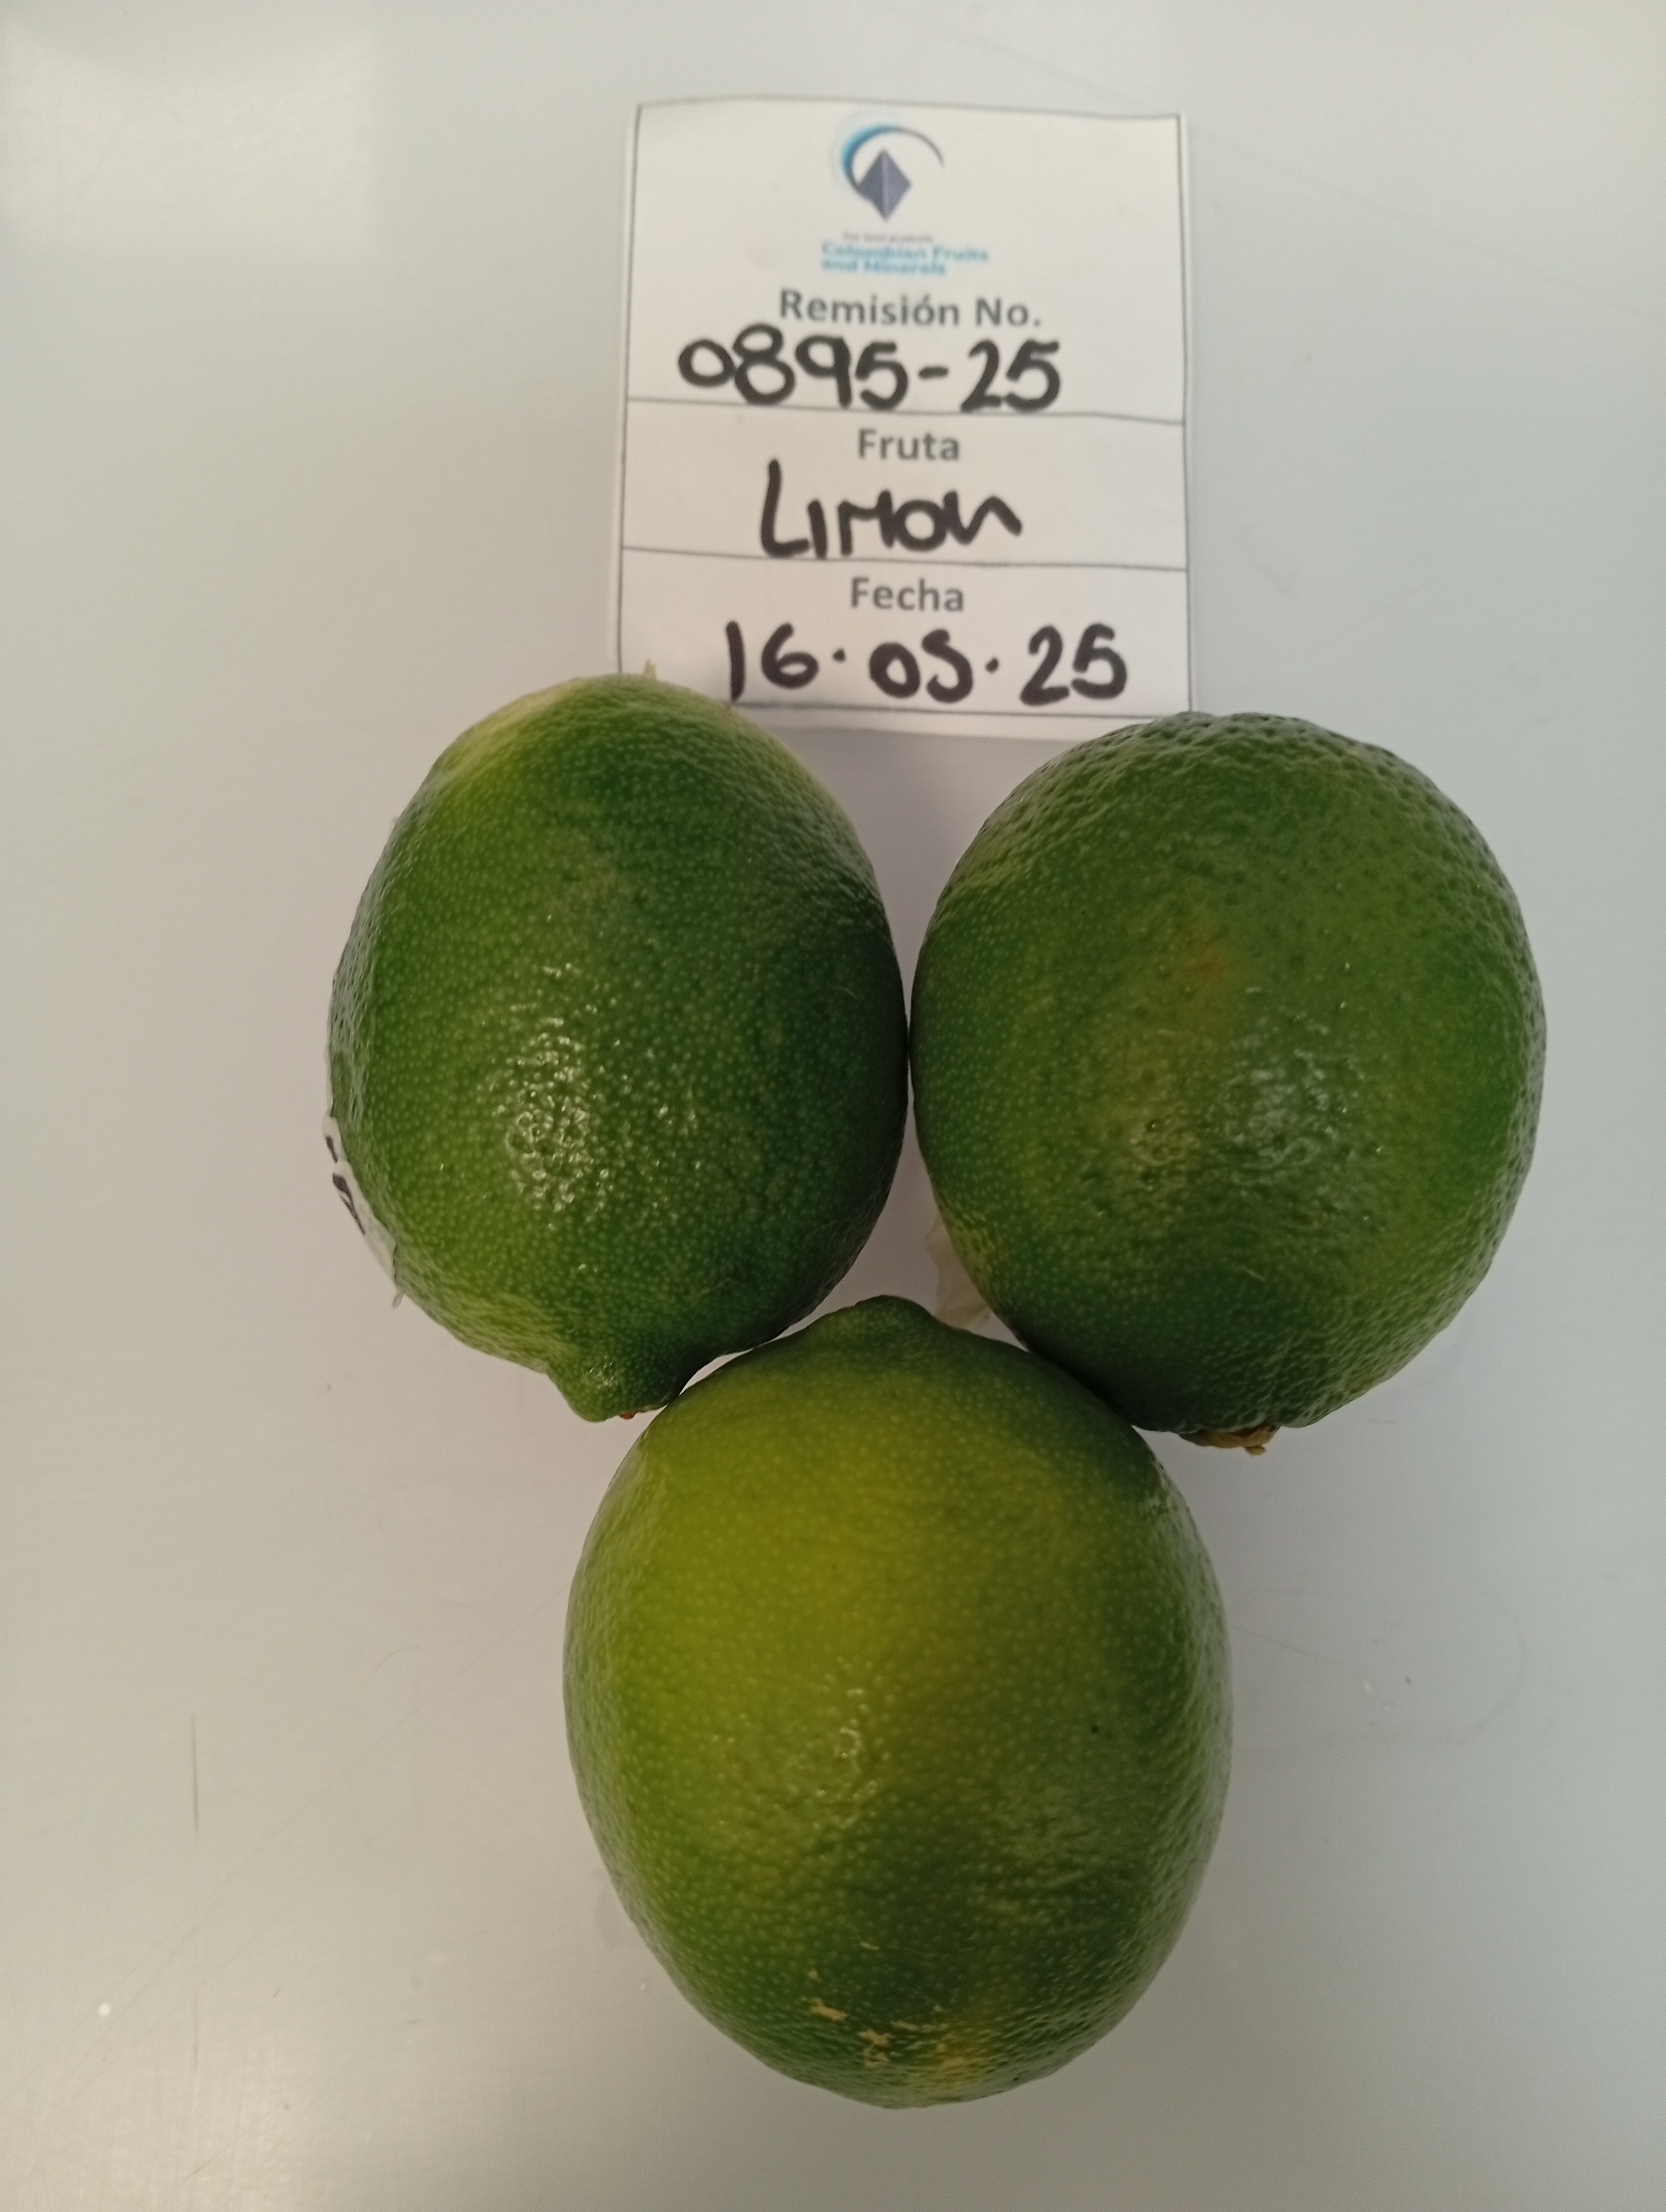 Colombian Fruits
and Minerals
Remisión No.
0895-25
Fruta
LIMON
Fecha
16.05.25